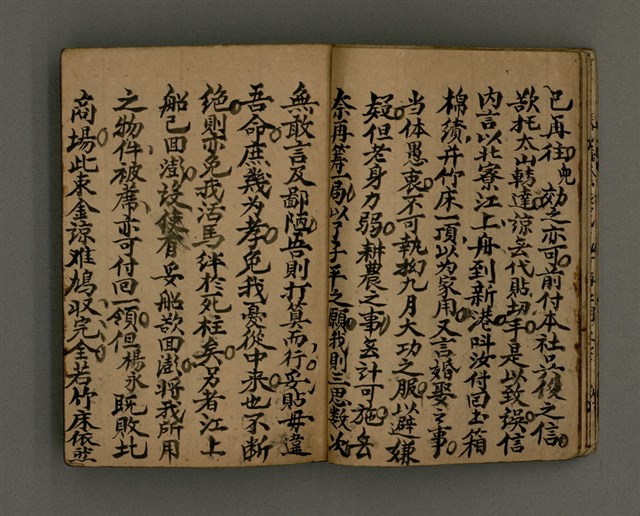 已再往兔効之亦可前付本社并後之信
歆托太山轉達諒去代貼切手是以致誤信
内言以北寮江上舟到新港叫汝付回土箱
棉績并竹床一項以为家用又言婚娶之事
当体愚衷不可執拗九月大功之服以避嫌
疑但老身力弱耕農之事去計可施去
奈再筹一局以了子平之願我則三思数次
無敢言及鄙陋吾則打算而行妥貼毋違
吾命庶幾为孝免我憂從中来也不断
絶則亦免我活馬絆於死柱矣另者江上
船已回澎設使有妥船歆回澎将我所用
之物件被蓆亦可付回一領但楊永既敗北
商場此束金諒难鳩収完全若竹床依然